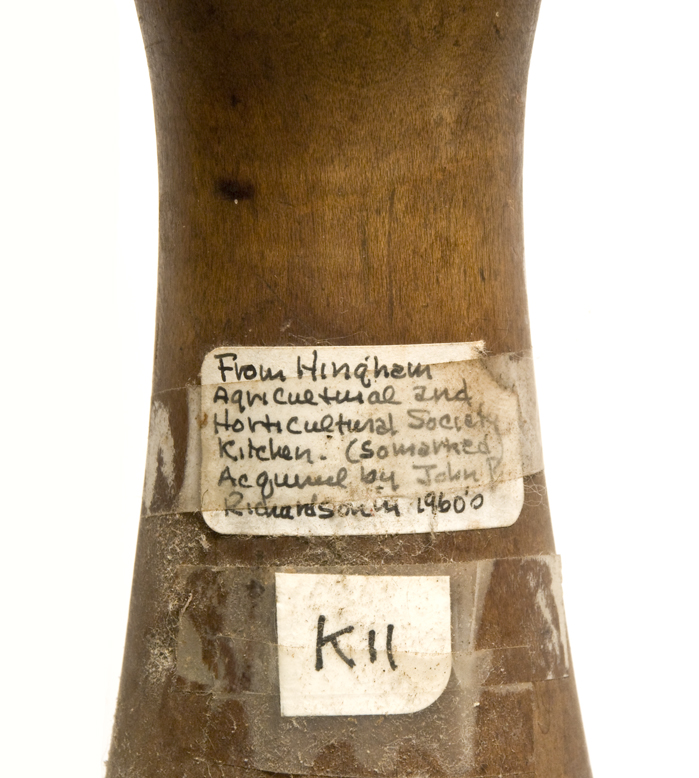 From Hingham
Agricultural and
Horticultural Society
Kitchen. (So marked)
Acquired by John P.
Richardson in 1960's
K11